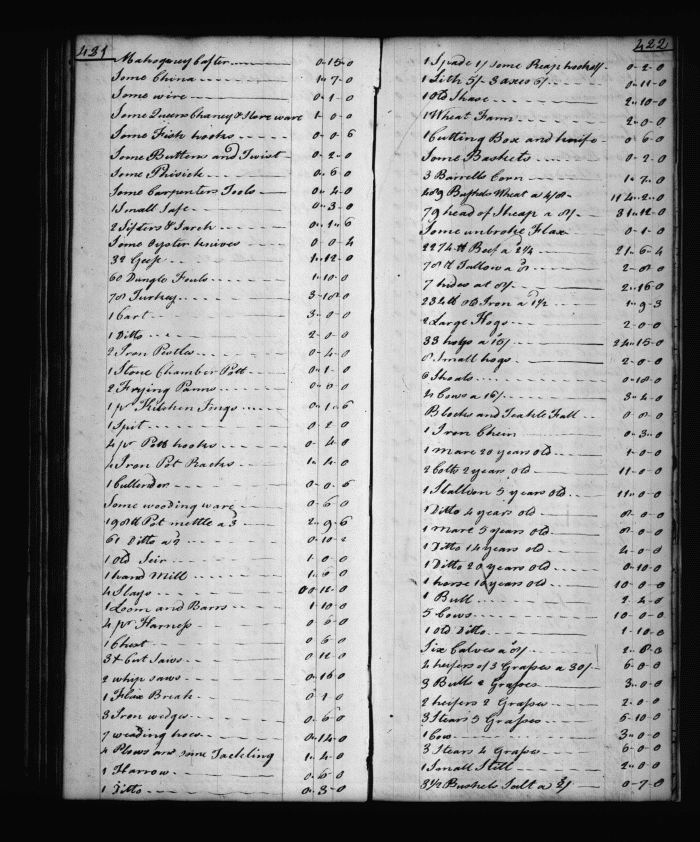 431
Mahogany Caster 0-15-0
Some China 1-7-0
Some wire 0-1-0
Some Queens Chaney & Stone ware 1-0-0
Some Fish hooks 0-0-6
Some Buttons and Twist 0-2-0
Some Phisick 0-6-0
Some Carpenters Tools 0-4-0
1 Small Safe 0-3-0
2 Sifters & Sarch 0-1-6
Some oyster knives 0-0-4
32 Geese 1-12-0
60 Dungle Fouls 1-10-0
78 Turkey 3-18-0
1 Cart 3-0-0
1 Ditto 2-0-0
2 Iron Pestles 0-4-0
1 Stone Chamber Pott 0-1-0
2 Frying Panns 0-8-0
1 pr Kitchen Tongs 0-1-6
1 Spit 0-2-0
4 pr Pott hooks 0-4-0
4 Iron Pot Racks 1-4-0
1 Cullender 0-0-6
Some wooding ware 0-6-0
198 lt Pot mettle a 3 2-9-6
61 Ditto a 2 0-10-2
1 old Seir 1-0-0
1 hand Mill 1-6-0
4 Slays 0-11-0
1 Loom and Barrs 1-10-0
4 pr Harness 0-6-0
1 Chest 0-6-0
3 + Cut Saws 0-11-0
2 whip saws 0-16-0
1 Flax Break 0-2-0
3 Iron wedges 0-6-0
7 weading hoes 0-14-0
4 Plows and some Tackling 1-4-0
1 Harrow 0-6-0
1 Ditto 0-3-0
422
1 Spade 1/ Some Reap hooks 1/- 0-2-0
1 Sith 5/- 3 axes 6/- 0-11-0
1 Old Shase 2-10-0
1 Wheat Fann 2-0-0
1 Cutting Box and knife 0-6-0
Some Baskets 0-2-0
3 Barrells Corn 1-7-0
489 Bushels Wheat a 4/8 114-2-0
79 head of Sheap a 8/- 31-12-0
Some unbroke Flax 0-1-0
2274 lt Beef a 2¼ 21-6-4
78 lt Tallow a 8 2-8-0
7 hides at 8/ 2-16-0
234 lt old Iron a 1½ 1-9-3
2 Large Hogs 2-0-0
33 hogs a 15/ 24-15-0
8 Small hogs 2-0-0
6 Shoats 0-18-0
4 Sows a 16/ 3-4-0
Blocks and Teakle Fall 0-8-0
1 Iron Chein 0-3-0
1 mare 20 years old 1-0-0
2 Colts 2 year old 11-0-0
1 Stallion 5 years old 11-0-0
1 Ditto 4 years old 8-0-0
1 mare 5 years old 8-0-0
1 Ditto 14 years old 4-0-0
1 Ditto 20 years old 0-10-0
1 horse 10 years old 10-0-0
1 Bull 2-4-0
5 Cows 10-0-0
1 old Ditto 1-10-0
Six Calves a 8/ 2-8-0
4 heifers of 3 Grasses a 30/- 6-0-0
3 Bulls 2 Grasses 3-0-0
2 heifers 2 Grasses 2-0-0
3 Stears 5 Grasses 6-10-0
1 Cow 3-0-0
3 Stears 4 Grasses 6-0-0
1 Small Still 2-0-0
3½ Bushels Salt a 2/ 0-7-0